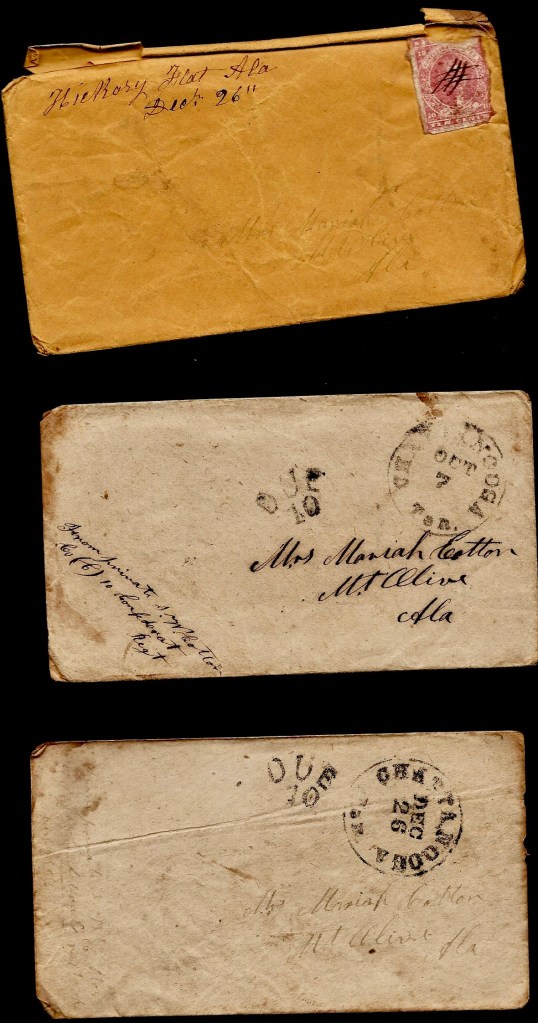 Hickory Flat Ala
Decr 26"
TEN CENTS
Mrs Mariah Cotton
Mt Olive
Ala
CHATTANOOGA
OCT
7
Ten.
DUE
10
Mrs Mariah Cotton
Mt Olive
Ala
From private J. W Cotton
Co (C) 10 Confederat
Regt
DUE
10
CHATTANOOGA
DEC
26
Ten.
Mrs Mariah Cotton
Mt Olive
Ala